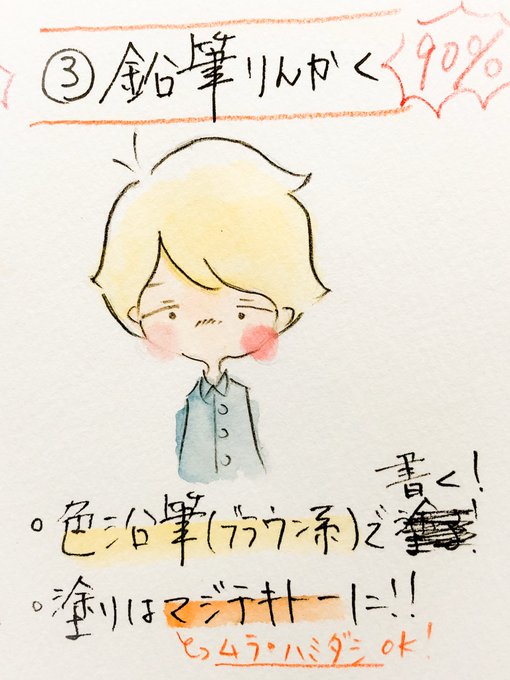 ③鉛筆りんかく 90%
書く!
○色沿筆(ブラウン系)で
○塗りはマジテキトーに!!
ムラ・ハミダシOK!